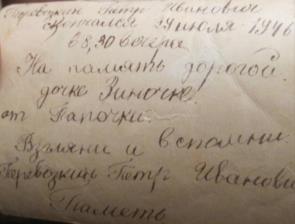 Перевозкин Петр Иванович
скончался 29 июля 1946
в 8,30 вечера
На память дорогой
дочке Зиночке
от Папочки.
Взгляни и вспомни.
Перевозкин Петр Иванови
Паметь